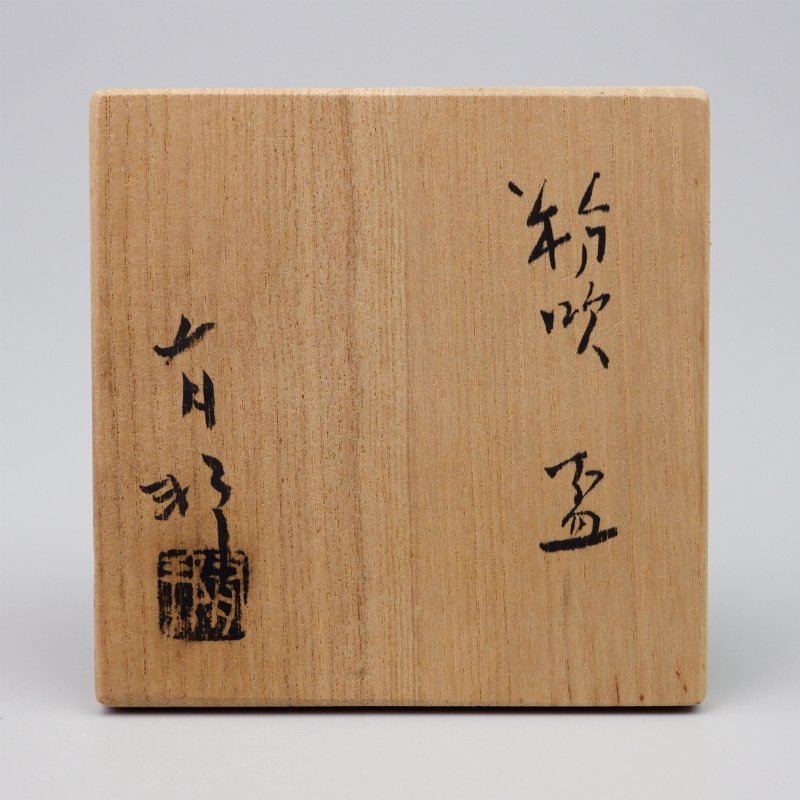 粉吹 盃
有邦